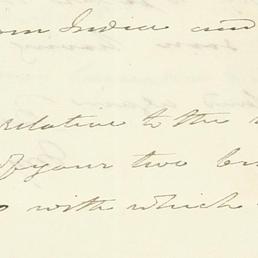 from India and
relative to the
of your two
with which